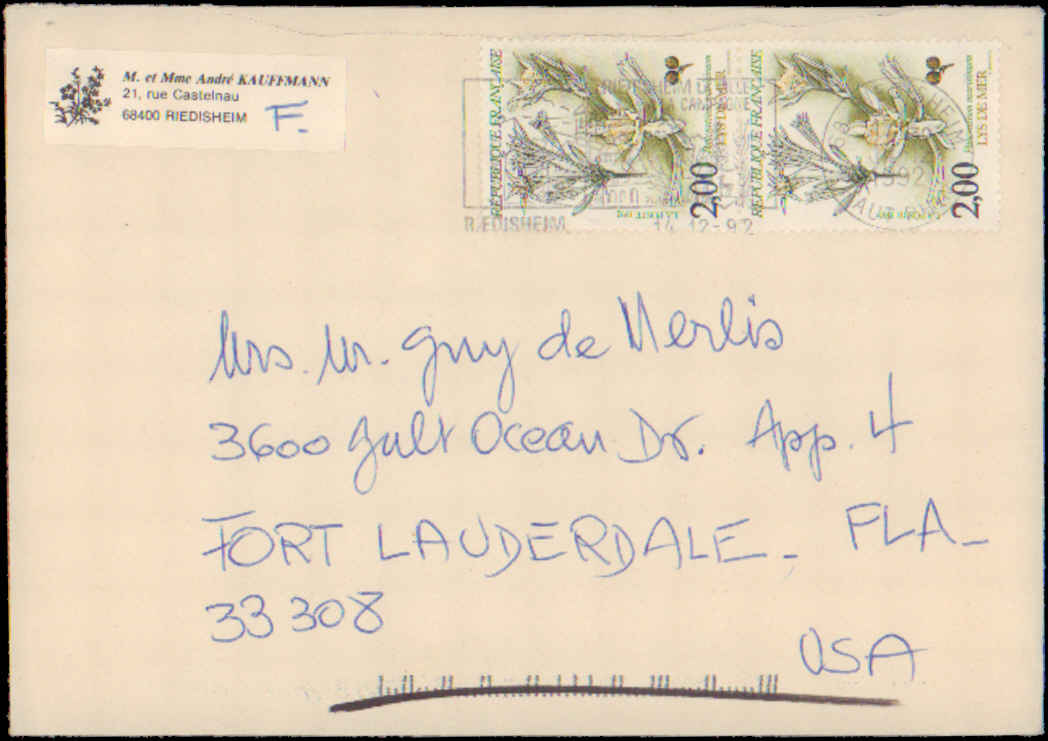 M. et Mme André KAUFFMANN
21, rue Castelnau
68400 RIEDISHEIM F.
REPUBLIQUE FRANÇAISE
LYS DE MER
2,00
REPUBLIQUE FRANÇAISE
Pancratium maritimum
LYS DE MER
2,00
LA CAMPAGNE
RIEDISHEIM
14-12-92
1992
Mrs. Mr. Guy de Merlis
3600 Galt Ocean Dr. App. 4
FORT LAUDERDALE - FLA -
33 308
USA